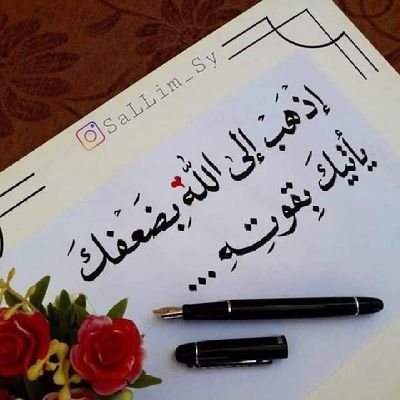 SaLLim_Sy
إذهَبْ إلىٰ اللّٰهِ بِضَعَفكَ
يأتيكَ بِقوتِهِ...